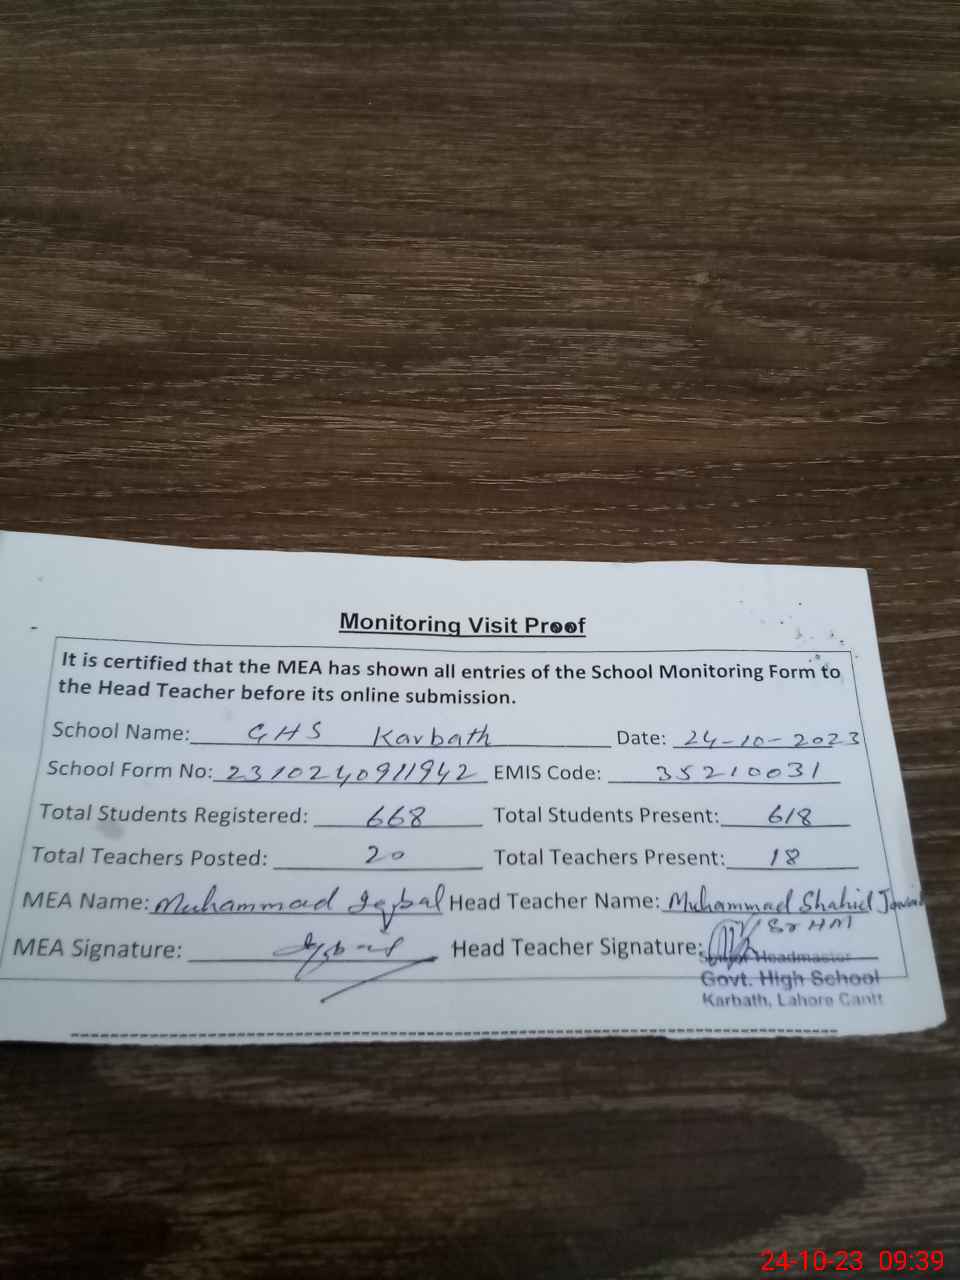 Monitoring Visit Proof
It is certified that the MEA has shown all entries of the School Monitoring Form to
the Head Teacher before its online submission.
School Name: GHS Karbath Date: 24-10-2023
School Form No: 2310240911942 EMIS Code: 35210031
Total Students Registered: 668 Total Students Present: 618
Total Teachers Posted: 20 Total Teachers Present: 18
MEA Name: Muhammad Iqbal Head Teacher Name: Muhammad Shahid Jawaid
Sr HM
MEA Signature: Iqbal Head Teacher Signature:
Senior Headmaster
Govt. High School
Karbath, Lahore Cantt
24-10-23 09:39